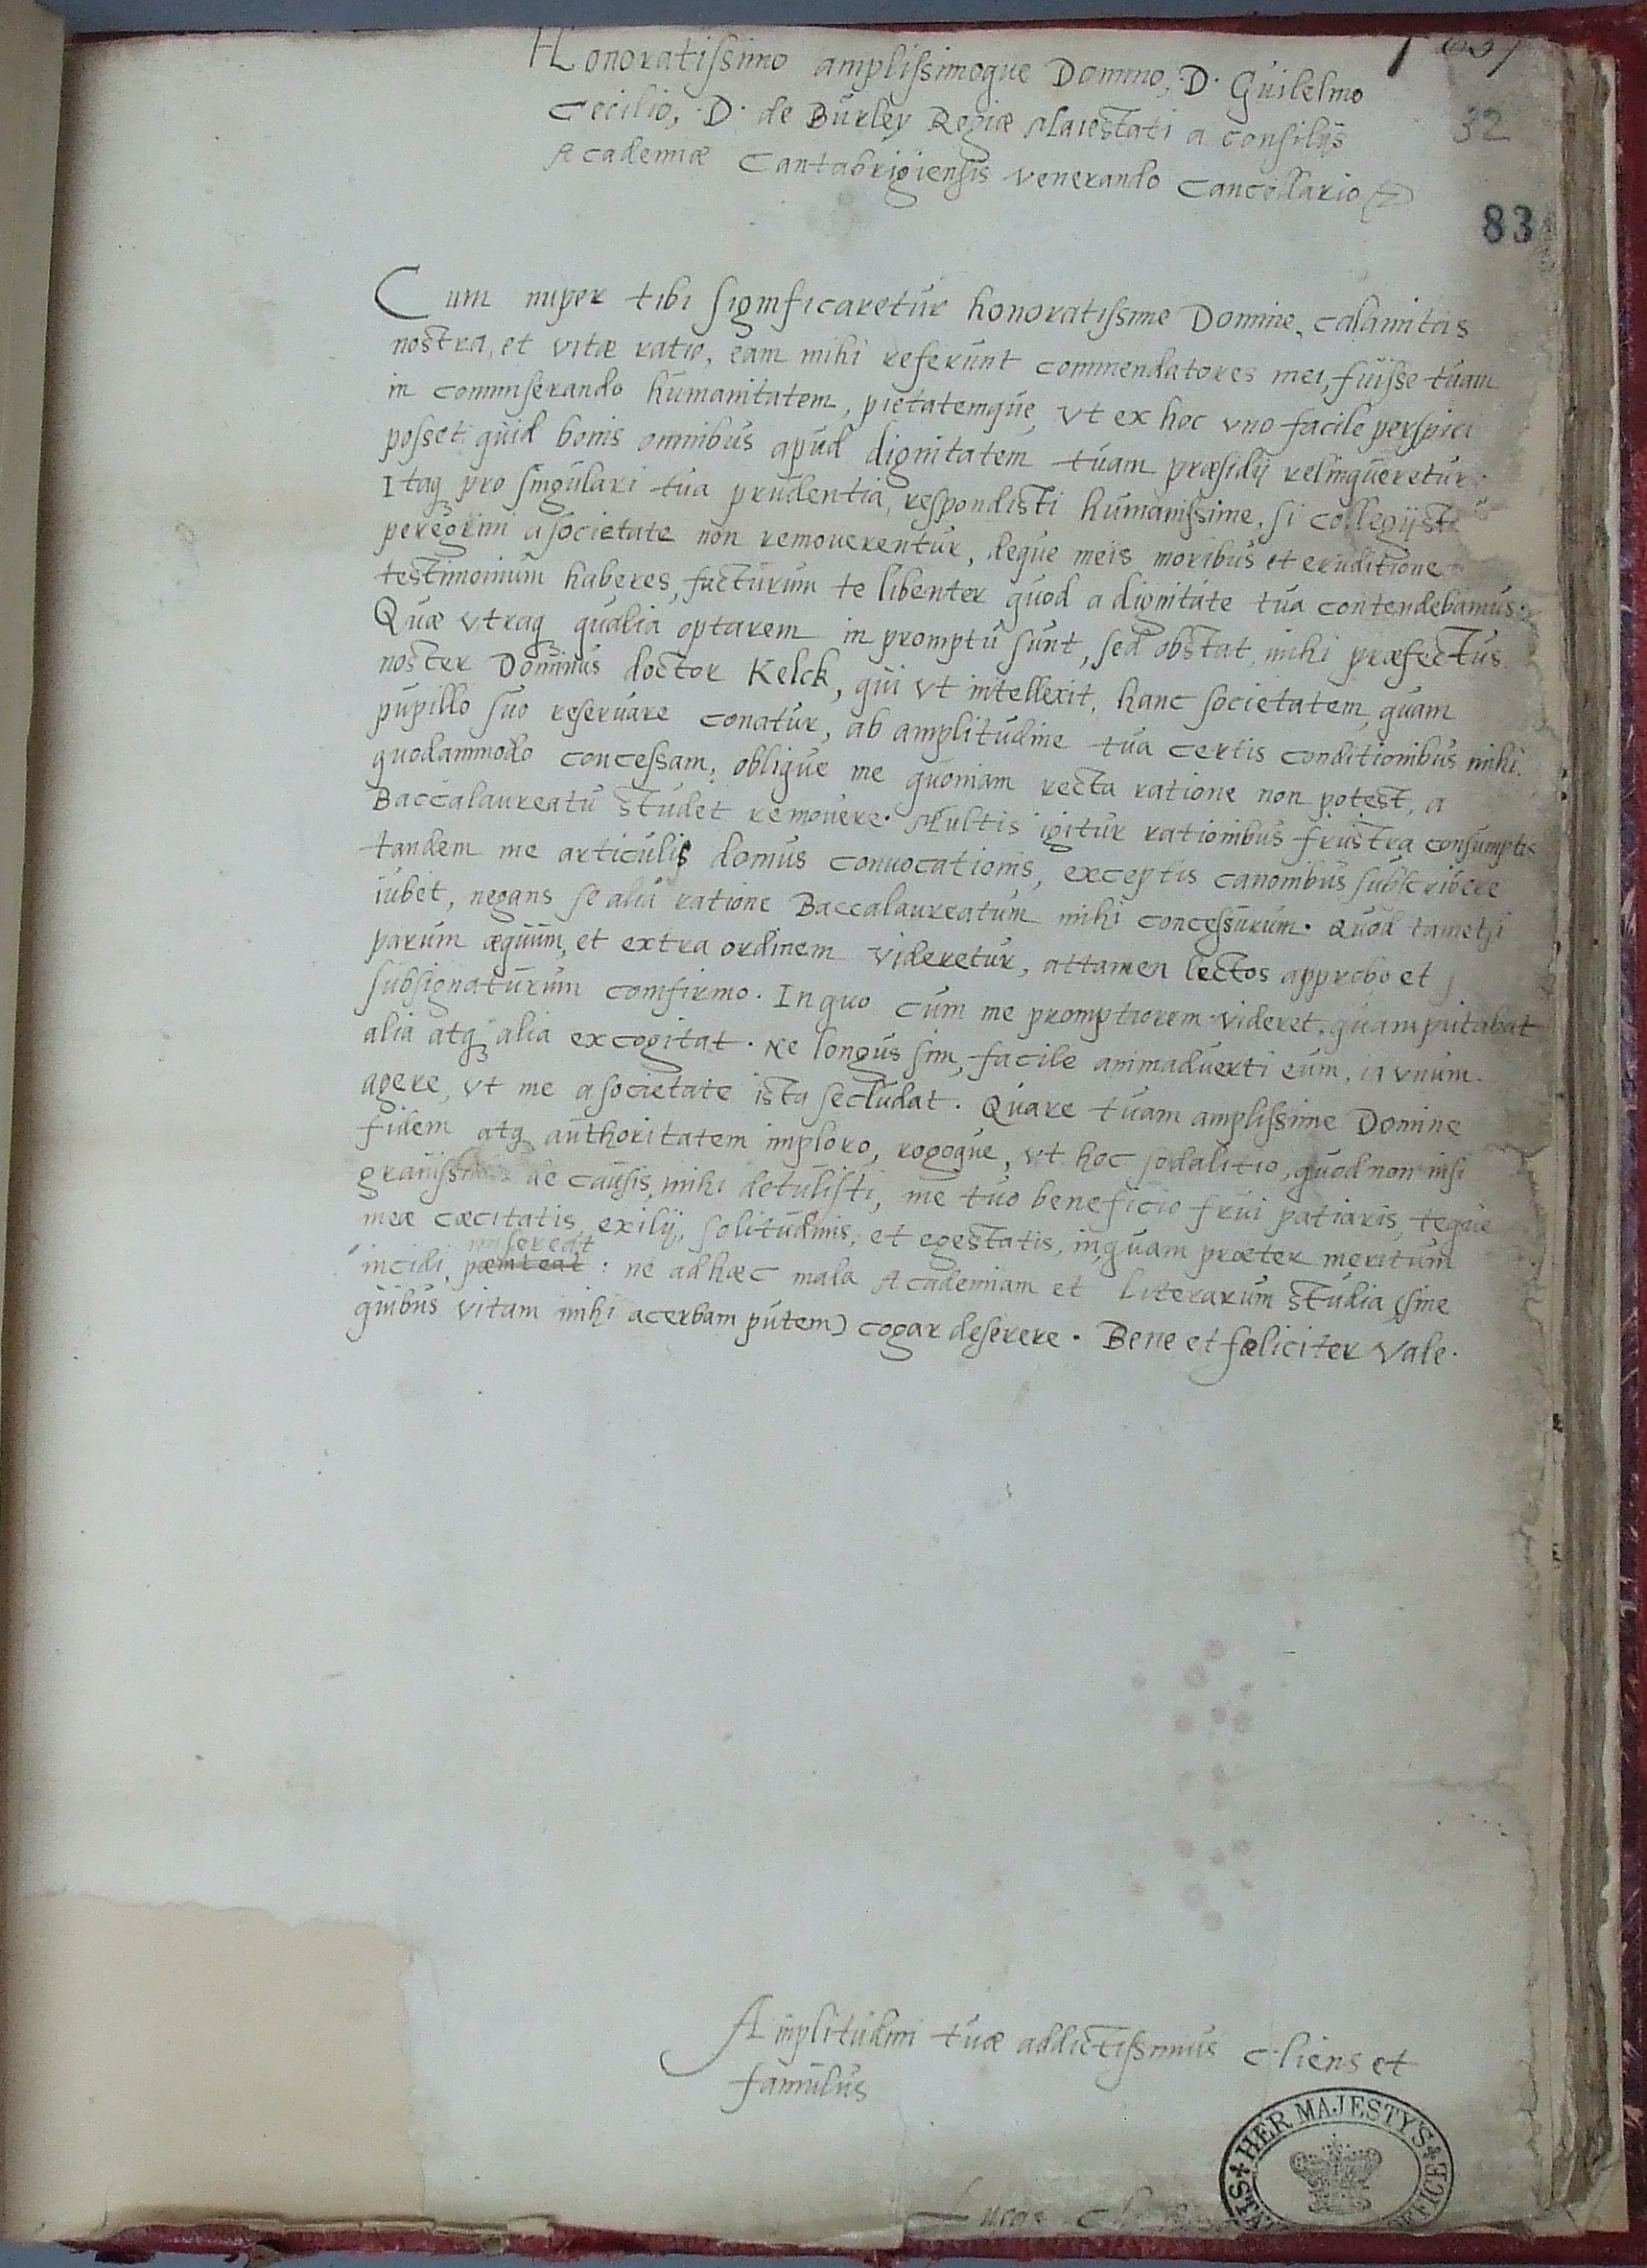 Honoratissimo amplissimoque Domino, D. Guilelmo
Cecilio, D. de Burley Regiæ Maiestati a consilijs
Academiæ Cantabrigiensis venerando Cancellario
32
83
Cum nuper tibi significaretur honoratissime Domine, calamitas
nostra, et vitæ ratio, eam mihi referunt commendatores mei, fuisse tuam
in commiserando humanitatem, pietatemque, vt ex hoc vno facile perspici
posset, quid bonis omnibus apud dignitatem tuam præsidij relinqueretur.
Itaq pro singulari tua prudentia, respondisti humanissime, si collegij
peregrini a societate non remouerentur, deque meis moribus et eruditione
testimonium haberes, facturum te libenter quod a dignitate tua contendebamus.
Quæ vtraq qualia optarem in promptu sunt, sed obstat mihi præfectus
noster Dominus doctor Kelck, qui vt intellexit, hanc societatem, quam
pupillo suo reseruare conatur, ab amplitudine tua certis conditionibus mihi
quodammodo concessam, oblique me quoniam recta ratione non potest, a
Baccalaureatu studet remouere. Multis igitur rationibus frustra consumptis
tandem me articulis domus conuocationis, exceptis canonibus subscribere
iubet, negans se alia ratione Baccalaureatum mihi concessurum. Quod tametsi
parum æquum, et extra ordinem videretur, attamen lectos approbo et
subsignaturum comfirmo. In quo cum me promptiorem videret, quam putabat
alia atq alia excogitat. Ne longus sim, facile animaduerti eum, id vnum
agere, vt me a societate ista secludat. Quare tuam amplissime Domine
fidem atq authoritatem imploro, rogoque, vt hoc sodalitio, quod non nisi
grauissimis de causis, mihi detulisti, me tuo beneficio frui patiaris, teque
meæ cæcitatis, exilij, solitudinis, et egestatis, in quam præter meritum
misereat
incidi, pœniteat : ne ad hæc mala Academiam et literarum studia (sine
quibus vitam mihi acerbam putem) cogar deserere. Bene et fæliciter Vale.
Amplitudini tuæ addictissimus cliens et
famulus
HER MAJESTY'S